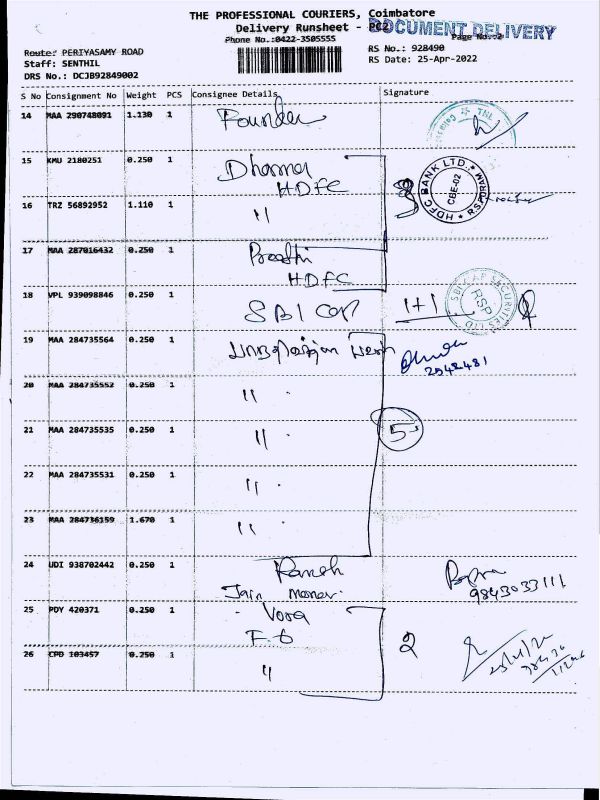 THE PROFESSIONAL COURIERS, Coimbatore
Delivery Runsheet - PC2
DOCUMENT DELIVERY
Phone No.:0422-3505555
Page No.:2
Route: PERIYASAMY ROAD
RS No.: 928490
Staff: SENTHIL
RS Date: 25-Apr-2022
DRS No.: DCJB92849002
S No Consignment No Weight PCS Consignee Details Signature
14 MAA 290748091 1.130 1 Founder
15 KMU 2180251 0.250 1 Dharma
HDFC
HDFC BANK LTD. RSPURAM CBE-02
16 TRZ 56892952 1.110 1 "
17 MAA 287016432 0.250 1 Preethi
HDFC
18 VPL 939098846 0.250 1 SBI cap 1+1
SBICAP SECURITIES LTD RSP
19 MAA 284735564 0.250 1
2942481
20 MAA 284735552 0.250 1 "
21 MAA 284735535 0.250 1 " 5
22 MAA 284735531 0.250 1 "
23 MAA 284736159 1.670 1 "
24 UDI 938702442 0.250 1 Ramesh
Jain Manor.
9843033111
25 PDY 420371 0.250 1 Vora
F-6
2
26 CPD 103457 0.250 1 "